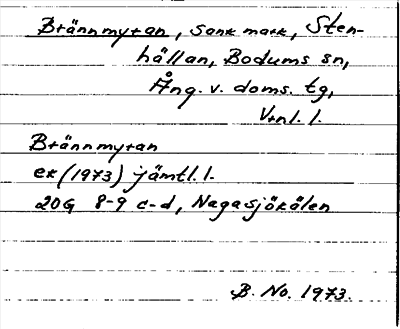 Brännmyran, sank mark, Sten-
hällan, Bodums sn,
Ång. v. doms. tg,
Vrnl. l.
Brännmyran
ek (1973) jämtl. l.
20G 8-9 c-d, Nagasjökälen
B. No. 1973.